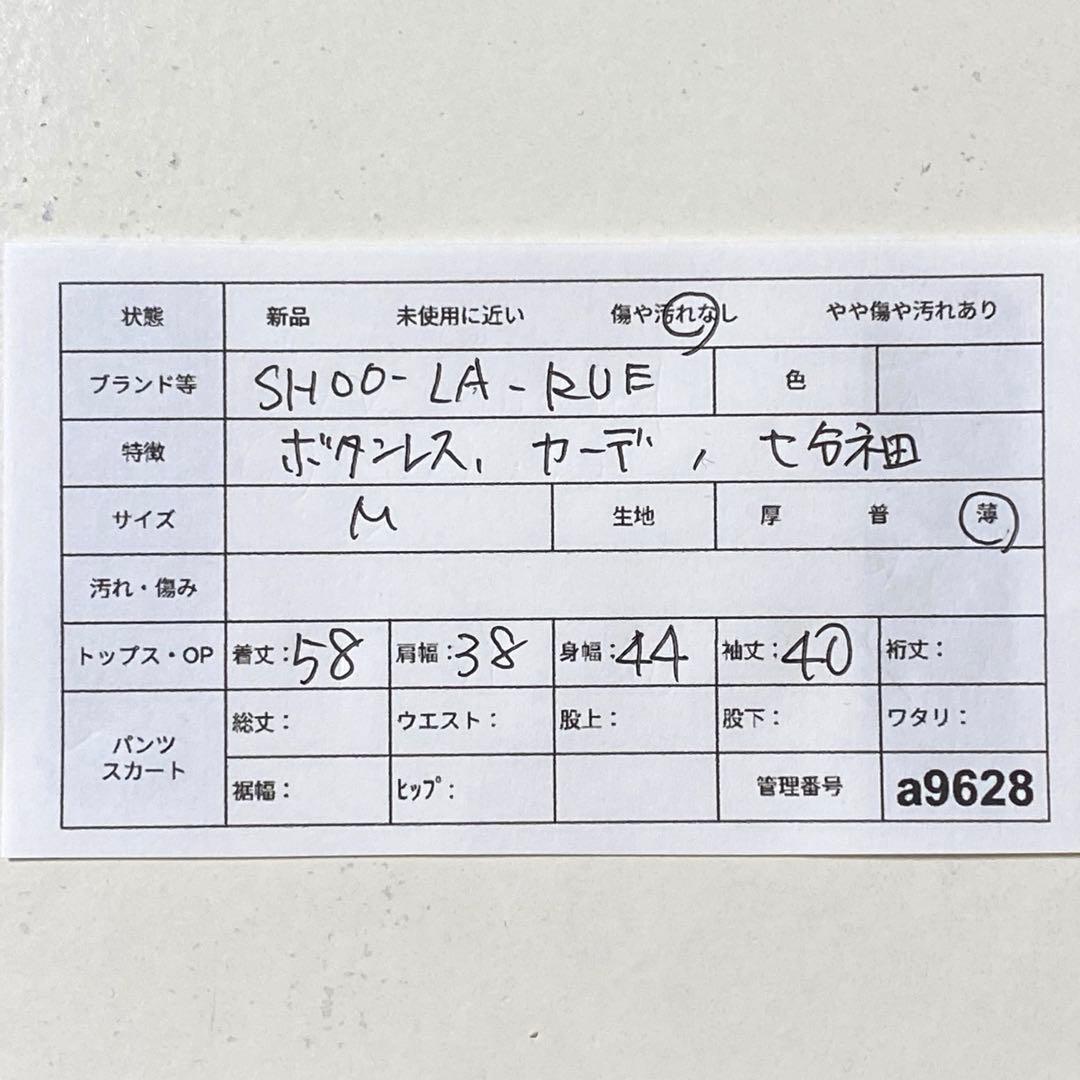 状態 新品 未使用に近い 傷や汚れなし やや傷や汚れあり
ブランド等 SHOO-LA-RUE 色
特徴 ボタンレス、カーデ、七分袖
サイズ M 生地 厚 普 薄
汚れ・傷み
トップス・OP 着丈：58 肩幅：38 身幅：44 袖丈：40 裄丈：
パンツ スカート 総丈： ウエスト： 股上： 股下： ワタリ：
裾幅： ヒップ： 管理番号 a9628